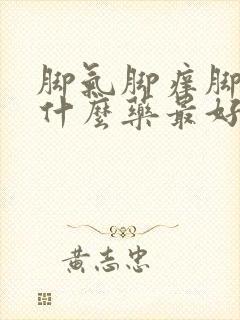 脚氣脚癢脚
什麽藥最好
黃志忠